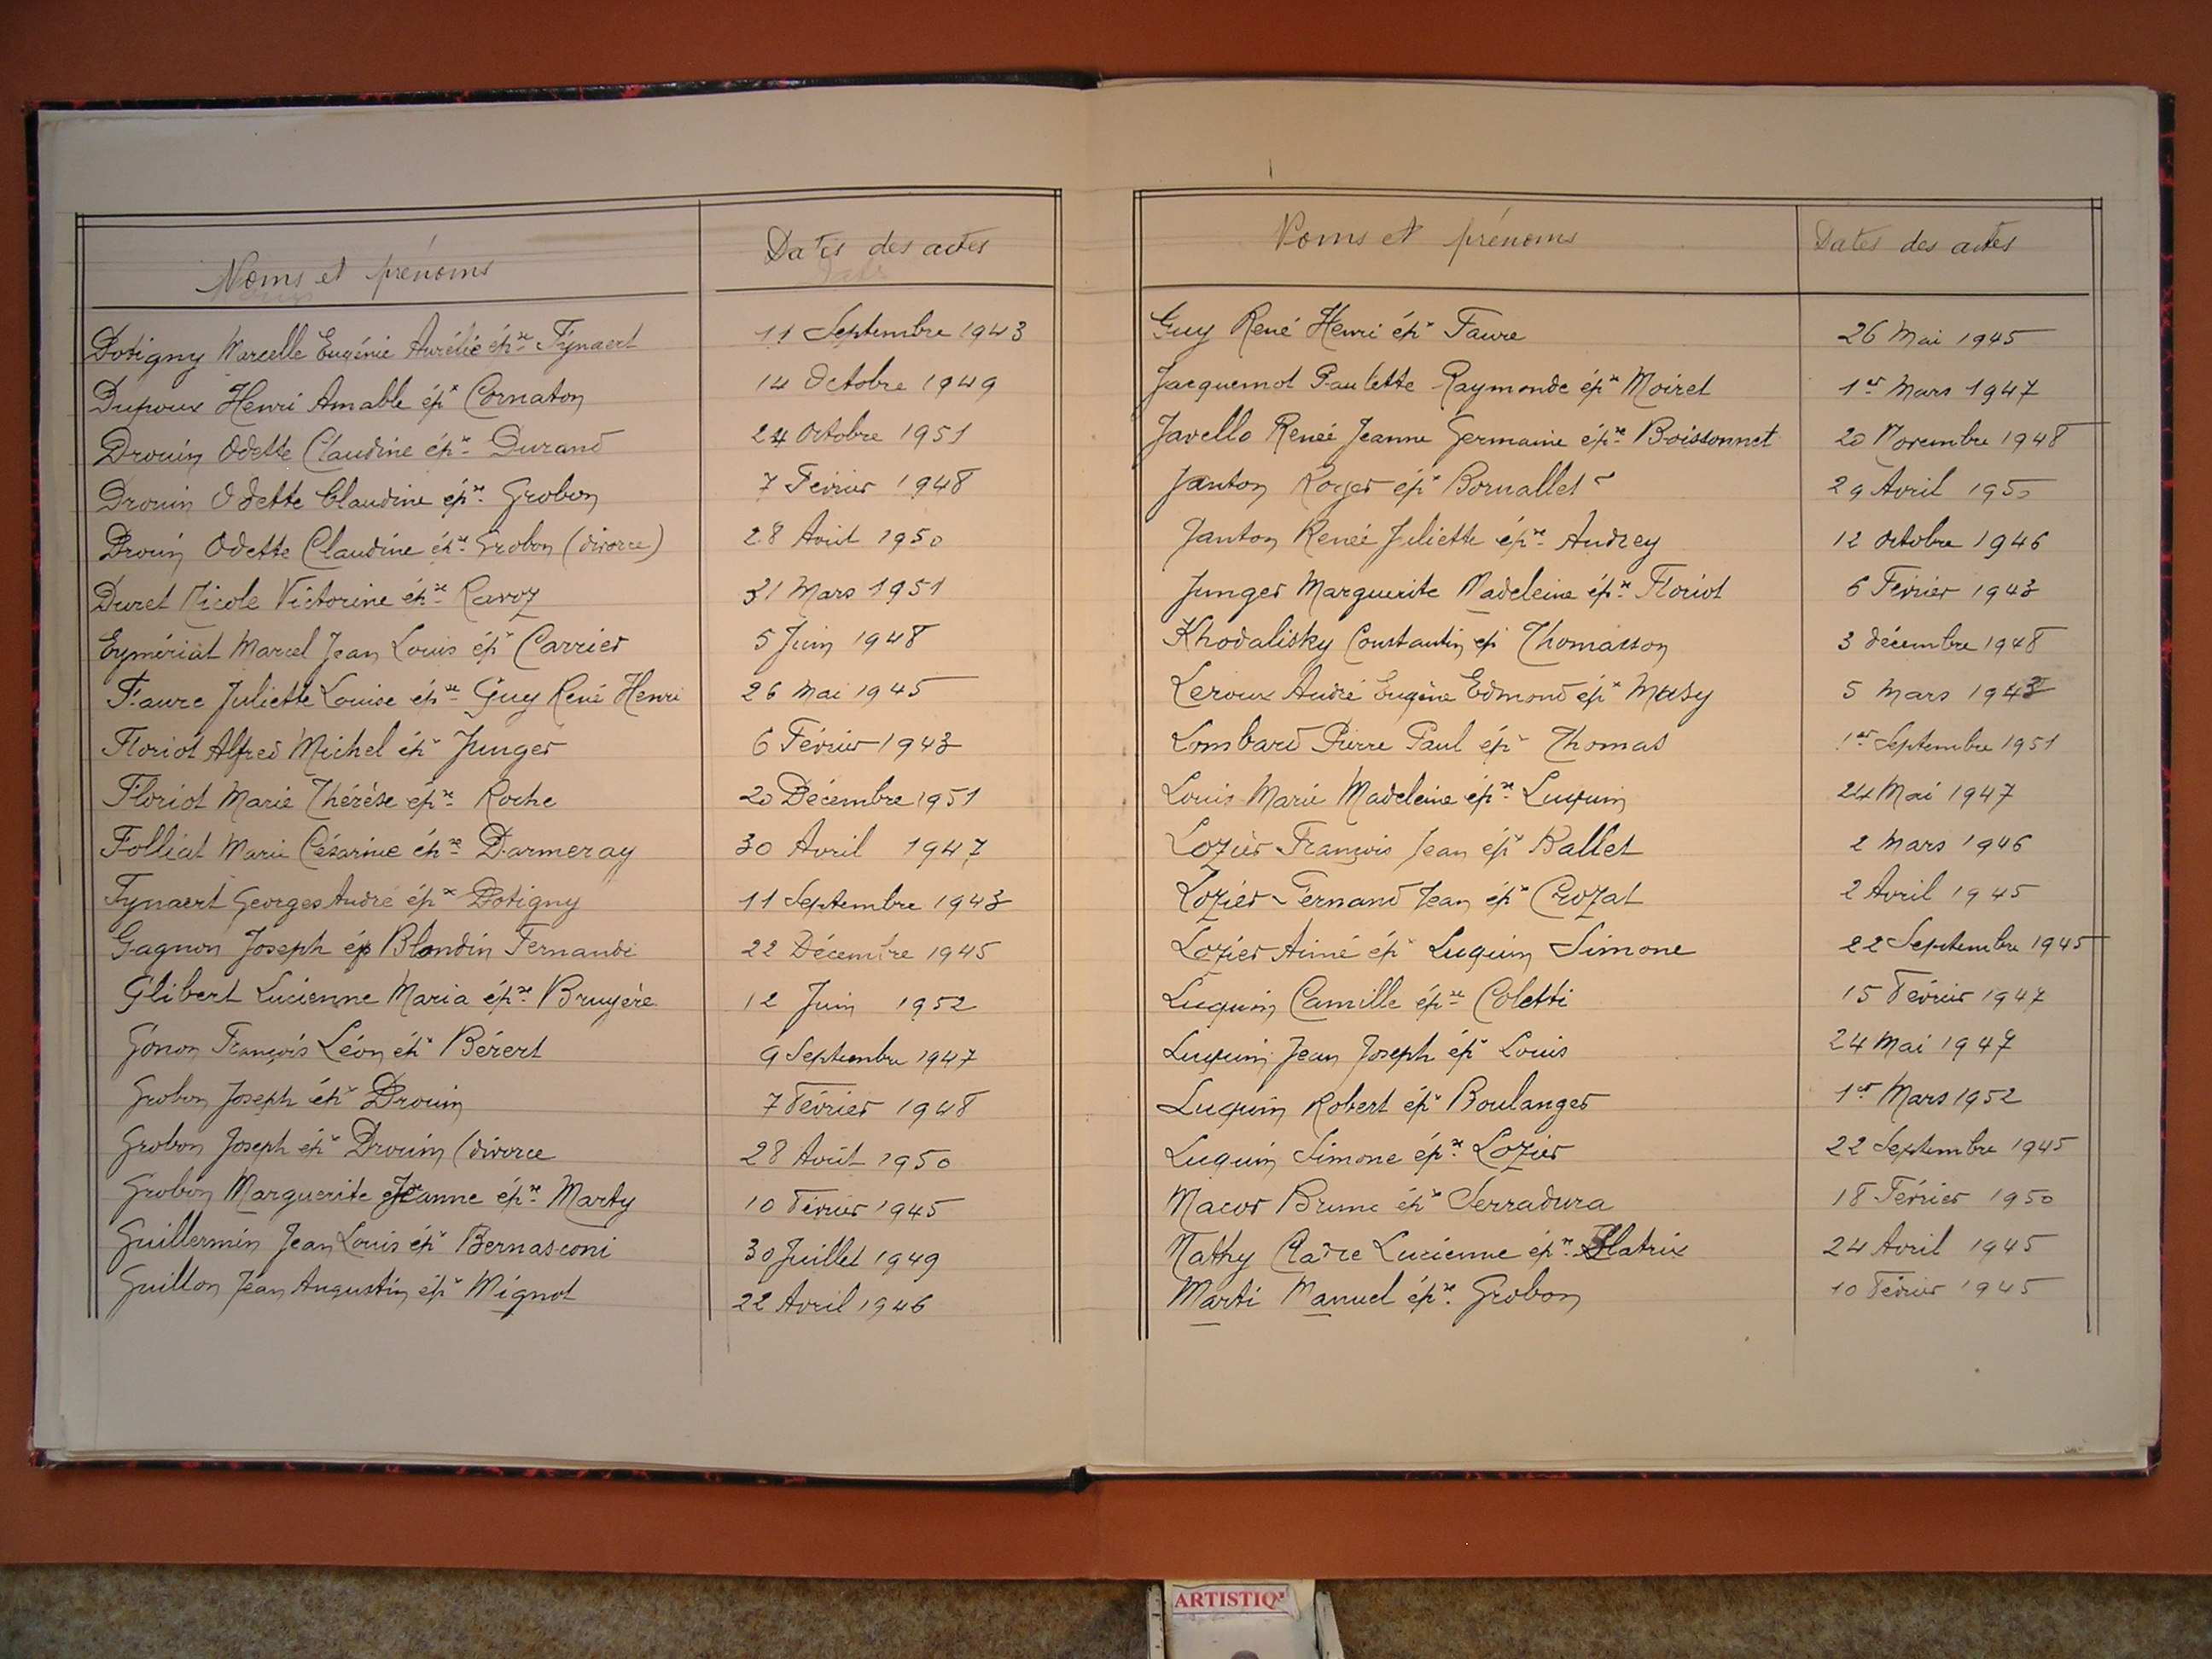 Noms et prénoms
Dates des actes
Dotigny Marcelle Eugénie Aurélie épse Fynaert 11 Septembre 1943
Dupoux Henri Amable épx Cornaton 14 Octobre 1949
Drouin Odette Claudine épse Durand 24 Octobre 1951
Drouin Odette Claudine épse Grobon 7 Février 1948
Drouin Odette Claudine épse Grobon (divorce) 28 Août 1950
Duret Nicole Victorine épse Ravoz 31 Mars 1951
Eymériat Marcel Jean Louis épx Carrier 5 Juin 1948
Faure Juliette Louise épse Guy René Henri 26 Mai 1945
Floriot Alfred Michel épx Junger 6 Février 1943
Floriot Marie Thérèse épse Roche 20 Décembre 1951
Folliat Marie Césarine épse Darmeray 30 Avril 1947
Fynaert Georges André épx Dotigny 11 Septembre 1943
Gagnon Joseph ép Blondin Fernande 22 Décembre 1945
Glibert Lucienne Maria épse Bruyère 12 Juin 1952
Gonon François Léon épx Bérert 9 Septembre 1947
Grobon Joseph épx Drouin 7 Février 1948
Grobon Joseph épx Drouin (divorce 28 Août 1950
Grobon Marguerite Jeanne épse Marty 10 Février 1945
Guillermin Jean Louis épx Bernasconi 30 Juillet 1949
Guillon Jean Augustin épx Mignot 22 Avril 1946
Noms et prénoms
Dates des actes
Guy René Henri épx Faure 26 Mai 1945
Jacquemot Paulette Raymonde épx Moiret 1er Mars 1947
Javello Renée Jeanne Germaine épse Boissonnet 20 Novembre 1948
Janton Roger épx Bornallet 29 Avril 1950
Janton Renée Juliette épse Audrey 12 Octobre 1946
Junger Marguerite Madeleine épse Floriot 6 Février 1943
Khodalisky Constantin ép Thomasson 3 décembre 1948
Leroux André Eugène Edmond épx Masy 5 Mars 1943
Lombard Pierre Paul épx Thomas 1er Septembre 1951
Louis Marie Madeleine épse Luquin 24 Mai 1947
Lozier François Jean épx Ballet 2 Mars 1946
Lozier Fernand Jean épx Crozat 2 Avril 1945
Lozier Aimé épx Luquin Simone 22 Septembre 1945
Luquin Camille épse Coletti 15 Février 1947
Luquin Jean Joseph épx Louis 24 Mai 1947
Luquin Robert épx Boulanger 1er Mars 1952
Luquin Simone épse Lozier 22 Septembre 1945
Macor Bruno épx Serradura 18 Février 1950
Mathy Claire Lucienne épse Blatrix 24 Avril 1945
Marti Manuel épse Grobon 10 Février 1945
ARTISTIQ